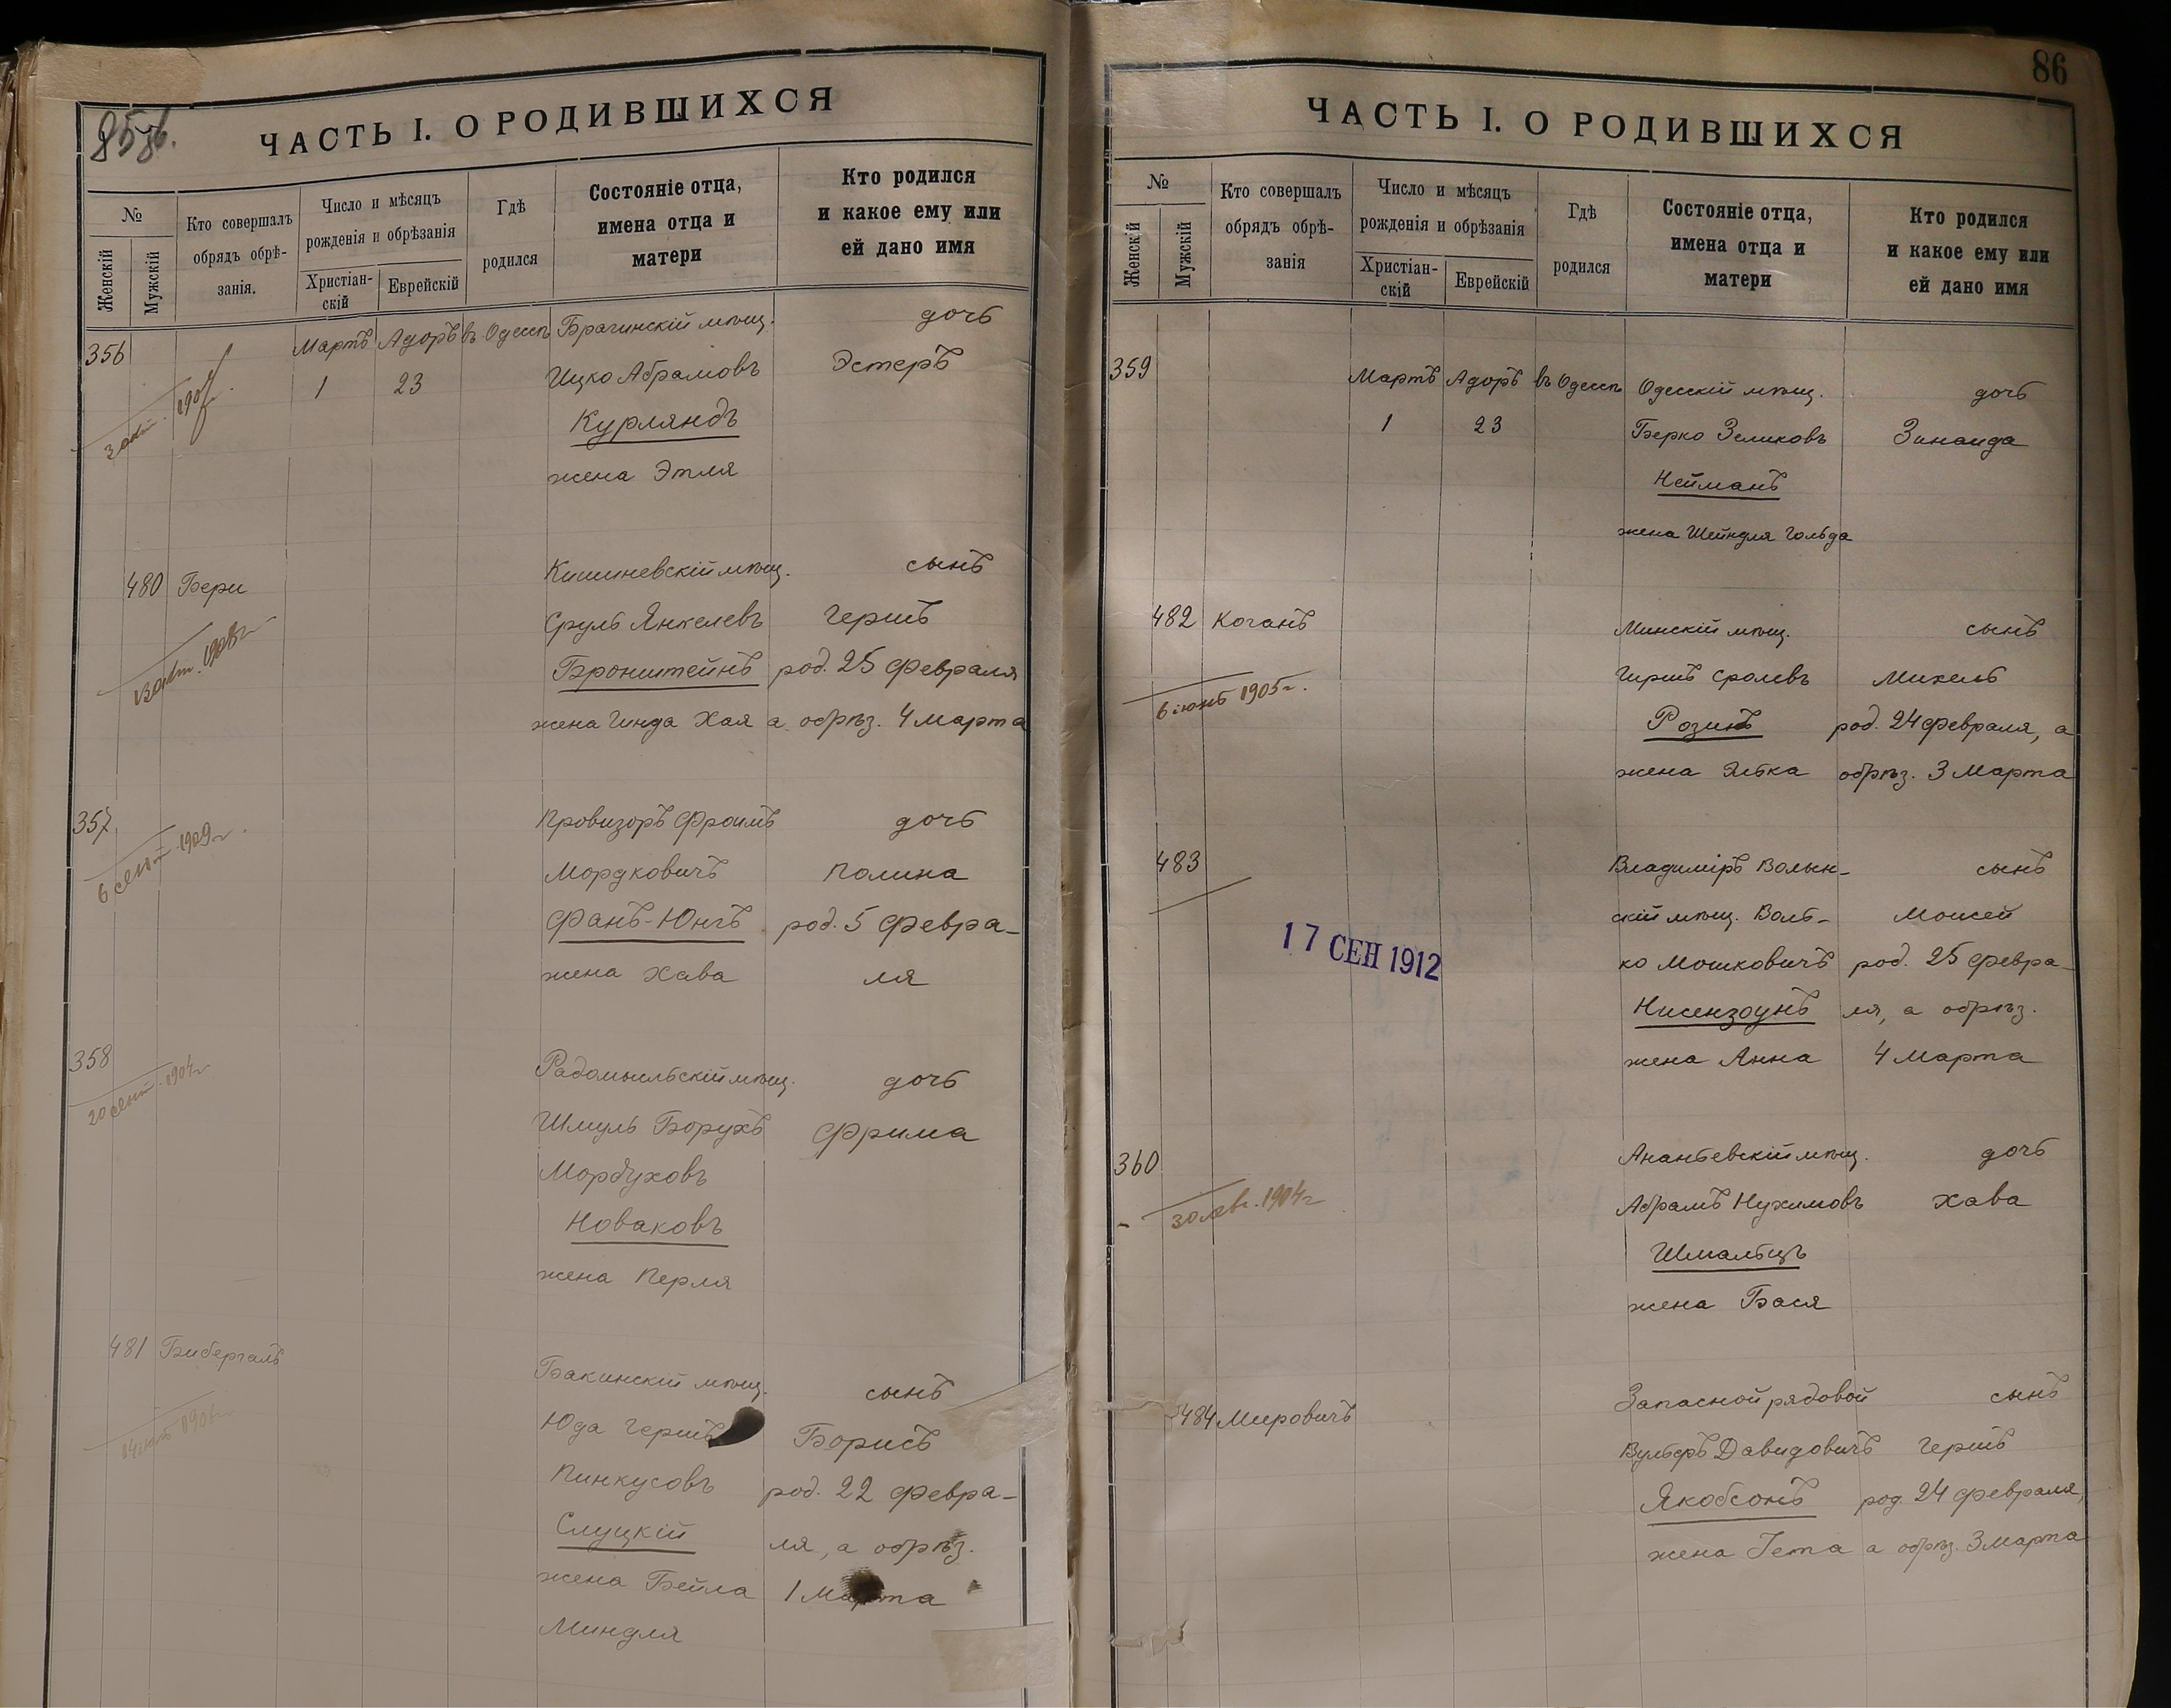 85об.
ЧАСТЬ I. О РОДИВШИХСЯ
№
Женскій
Мужскій
Кто совершалъ
обрядъ обрѣ-
занія.
Число и мѣсяцъ
рожденія и обрѣзанія
Христіан-
скій
Еврейскій
Гдѣ
родился
Состояніе отца,
имена отца и
матери
Кто родился
и какое ему или
ей дано имя
356
Мартъ Адоръ въ Одессѣ Брагинскій мѣщ. дочь
1 23 Ицко Абрамовъ Эстеръ
Курляндъ
жена Этля
480 Бери Кишиневскій мѣщ. сынъ
Сруль Янкелевъ Гершъ
Бронштейнъ род. 25 февраля
жена Гинда Хая а обрѣз. 4 марта
357 Провизоръ Фроимъ дочь
6 сент. 1909г Мордковичъ Полина
Фанъ-Юнгъ род. 5 февра-
жена Хава ля
358 Радомысльскій мѣщ. дочь
20 сент. 1904г Шмуль Борухъ Фрима
Мордуховъ
Новаковъ
жена Перля
481 Бибергалъ Бакинскій мѣщ. сынъ
Юда Гершъ Борисъ
Пинкусовъ род. 22 февра-
Слуцкій ля, а обрѣз.
жена Бейла 1 Марта
Миндля
86
ЧАСТЬ I. О РОДИВШИХСЯ
№
Женскій
Мужскій
Кто совершалъ
обрядъ обрѣ-
занія
Число и мѣсяцъ
рожденія и обрѣзанія
Христіан-
скій
Еврейскій
Гдѣ
родился
Состояніе отца,
имена отца и
матери
Кто родился
и какое ему или
ей дано имя
359 Мартъ Адоръ въ Одессѣ Одесскій мѣщ. дочь
1 23 Берко Зеликовъ Зинаида
Нейманъ
жена Шейндля Гольда
482 Коганъ Минскій мѣщ. сынъ
Гиршъ Сролевъ Михель
6 іюнь 1905г. Розинъ род. 24 февраля, а
жена Элька обрѣз. 3 Марта
483 Владиміръ Волын- сынъ
скій мѣщ. Воль- Моисей
17 СЕН 1912 ко Мошковичъ род. 25 февра-
Нисензоунъ ля, а обрѣз.
жена Анна 4 Марта
360 Ананьевскій мѣщ. дочь
30 авг. 1904г Абрамъ Нухимовъ Хава
Шмальцъ
жена Бася
484 Мировичъ Запасной рядовой сынъ
Вульфъ Давидовичъ Гершъ
Якобсонъ род. 24 февраля,
жена Гета а обрѣз. 3 марта